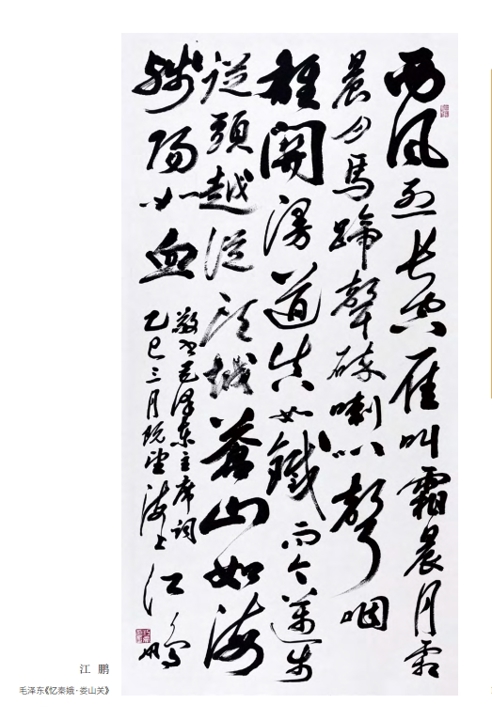 西風烈長空雁叫霜晨月霜
晨月馬蹄聲碎喇叭聲咽
雄關漫道真如鐵而今邁步
從頭越從頭越蒼山如海
殘陽如血
敬書毛澤東主席詞
乙巳三月既望海上江鵬
江 鹏
毛泽东《忆秦娥·娄山关》